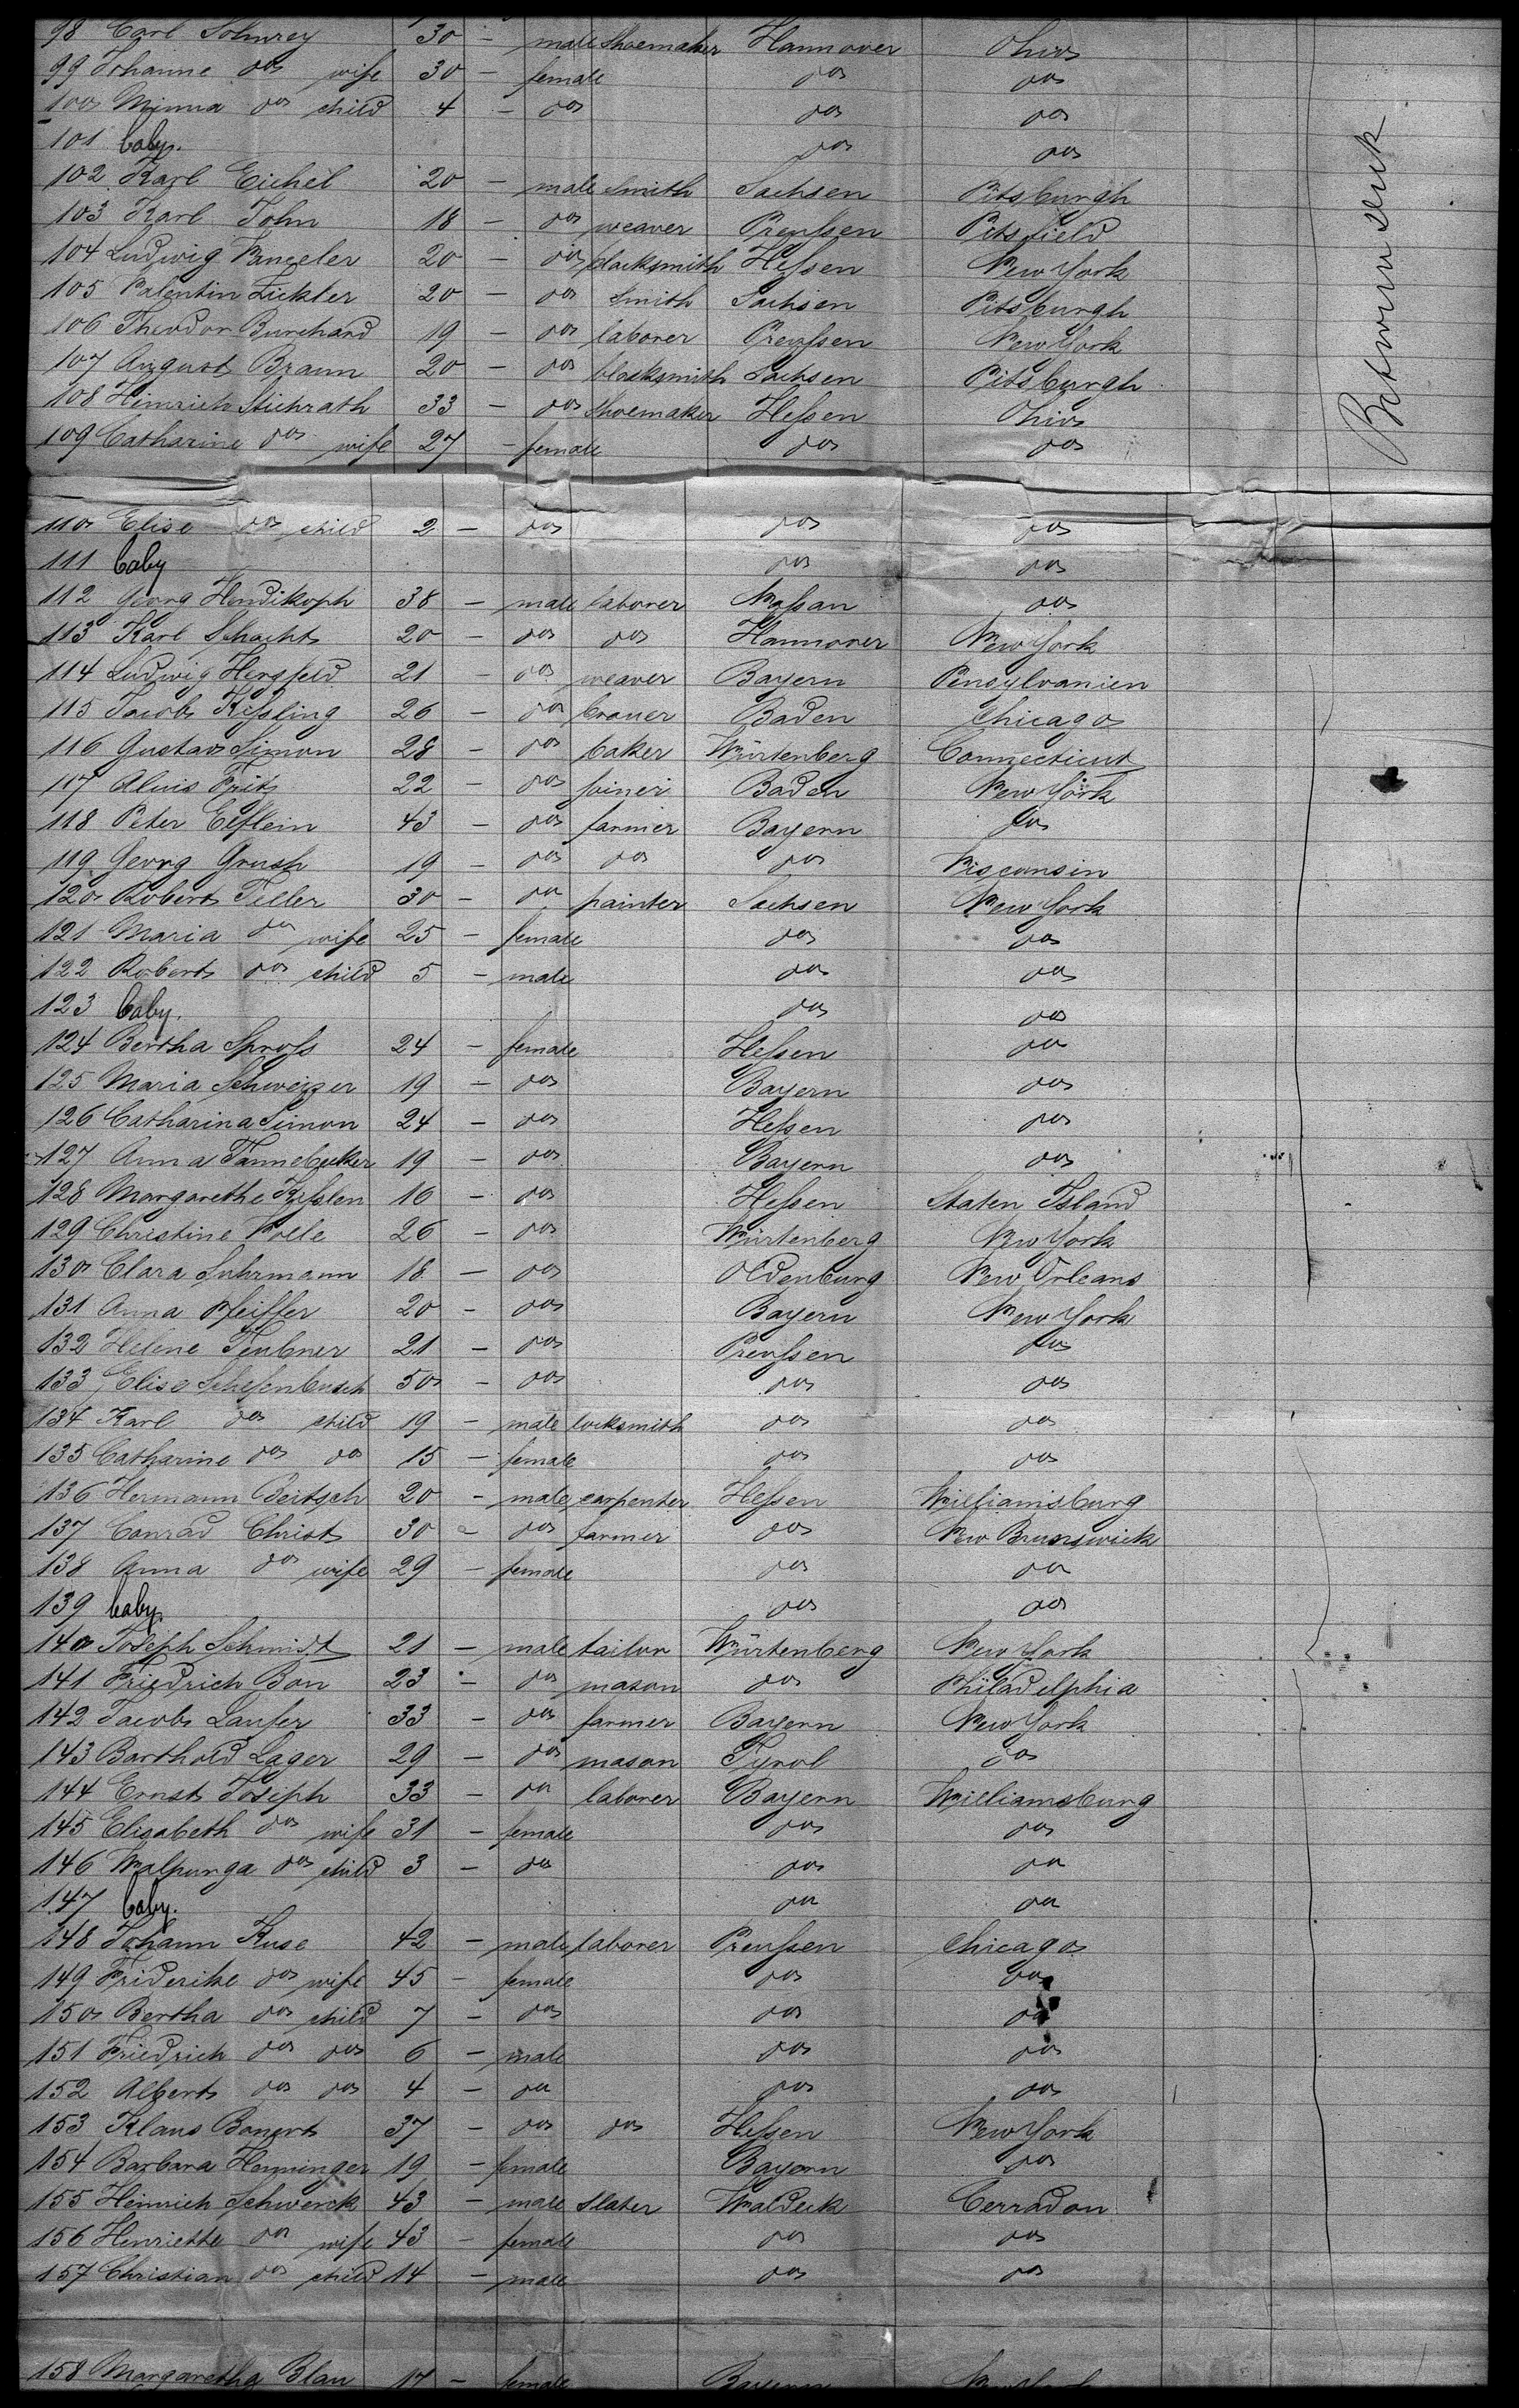 98 Carl Sohnrey 30 - male shoemaker Hannover Ohio
99 Johanne do wife 30 - female do do
100 Minna do child 4 - do do do
101 baby. do do
102 Karl Eichel 20 - male smith Sachsen Pitsburgh
103 Karl John 18 - do weaver Preussen Pitsfield
104 Ludwig 20 - do Hessen New York
105 Valentin Zickler 20 - do smith Sachsen Pitsburgh
106 Theodor Burchard 19 - do laborer Preussen New York
107 August Braun 20 - do blacksmith Sachsen Pitsburgh
108 Heinrich Stichrath 33 - do shoemaker Hessen Ohio
109 Catharine do wife 27 - female do do
Between deck
110 Elise do child 2 - do do do
111 baby do do
112 Georg 38 - male laborer Nassau do
113 Karl Schacht 20 - do do Hannover New York
114 Ludwig Hersfeld 21 - do weaver Bayern Pensylvanien
115 Jacob Kissling 26 - do brauer Baden Chicago
116 Gustav Simon 28 - do baker Würtenberg Connecticut
117 Aluis Fritz 22 - do joiner Baden New York
118 Peter Elflein 43 - do farmer Bayern do
119 Georg Grush 19 - do do do Wisconsin
120 Robert Teller 30 - do painter Sachsen New York
121 Maria do wife 25 - female do do
122 Robert do child 5 - male do do
123 baby. do do
124 Bertha Spross 24 - female Hessen do
125 Maria Schweizer 19 - do Bayern do
126 Catharina Simon 24 - do Hessen do
127 Anna Tannebecker 19 - do Bayern do
128 Margarethe Kisslen 16 - do Hessen Staten Island
129 Christine Nolle 26 - do Würtenberg New York
130 Clara Suhrmann 18 - do Oldenburg New Orleans
131 Anna Pfeiffer 20 - do Bayern New York
132 Helene Teubner 21 - do Preussen do
133 Elise 50 - do do do
134 Karl do child 19 - male locksmith do do
135 Catharine do do 15 - female do do
136 Hermann Deitsch 20 - male carpenter Hessen Williamsburg
137 Conrad Christ 30 - do farmer do New Brunswick
138 Anna do wife 29 - female do do
139 baby. do do
140 Joseph Schmidt 21 - male tailor Würtenberg New York
141 Friedrich Bon 23 - do mason do Philadelphia
142 Jacob Laufer 33 - do farmer Bayern New York
143 Barthold Lager 29 - do mason Tyrol do
144 Ernst Joseph 33 - do laborer Bayern Williamsburg
145 Elisabeth do wife 31 - female do do
146 Walpurga do child 3 - do do do
147 baby. do do
148 Johann Kuse 42 - male laborer Preussen Chicago
149 Friderike do wife 45 - female do do
150 Bertha do child 7 - do do do
151 Friedrich do do 6 - male do do
152 Albert do do 4 - do do do
153 Klaus Banert 37 - do do Hessen New York
154 Barbara Henninger 19 - female Bayern do
155 Heinrich Schwerck 43 - male slater Waldeck Cerradon
156 Henriette do wife 43 - female do do
157 Christian do child 14 - male do do
158 Margaretha Blau 17 - female Bayern New York